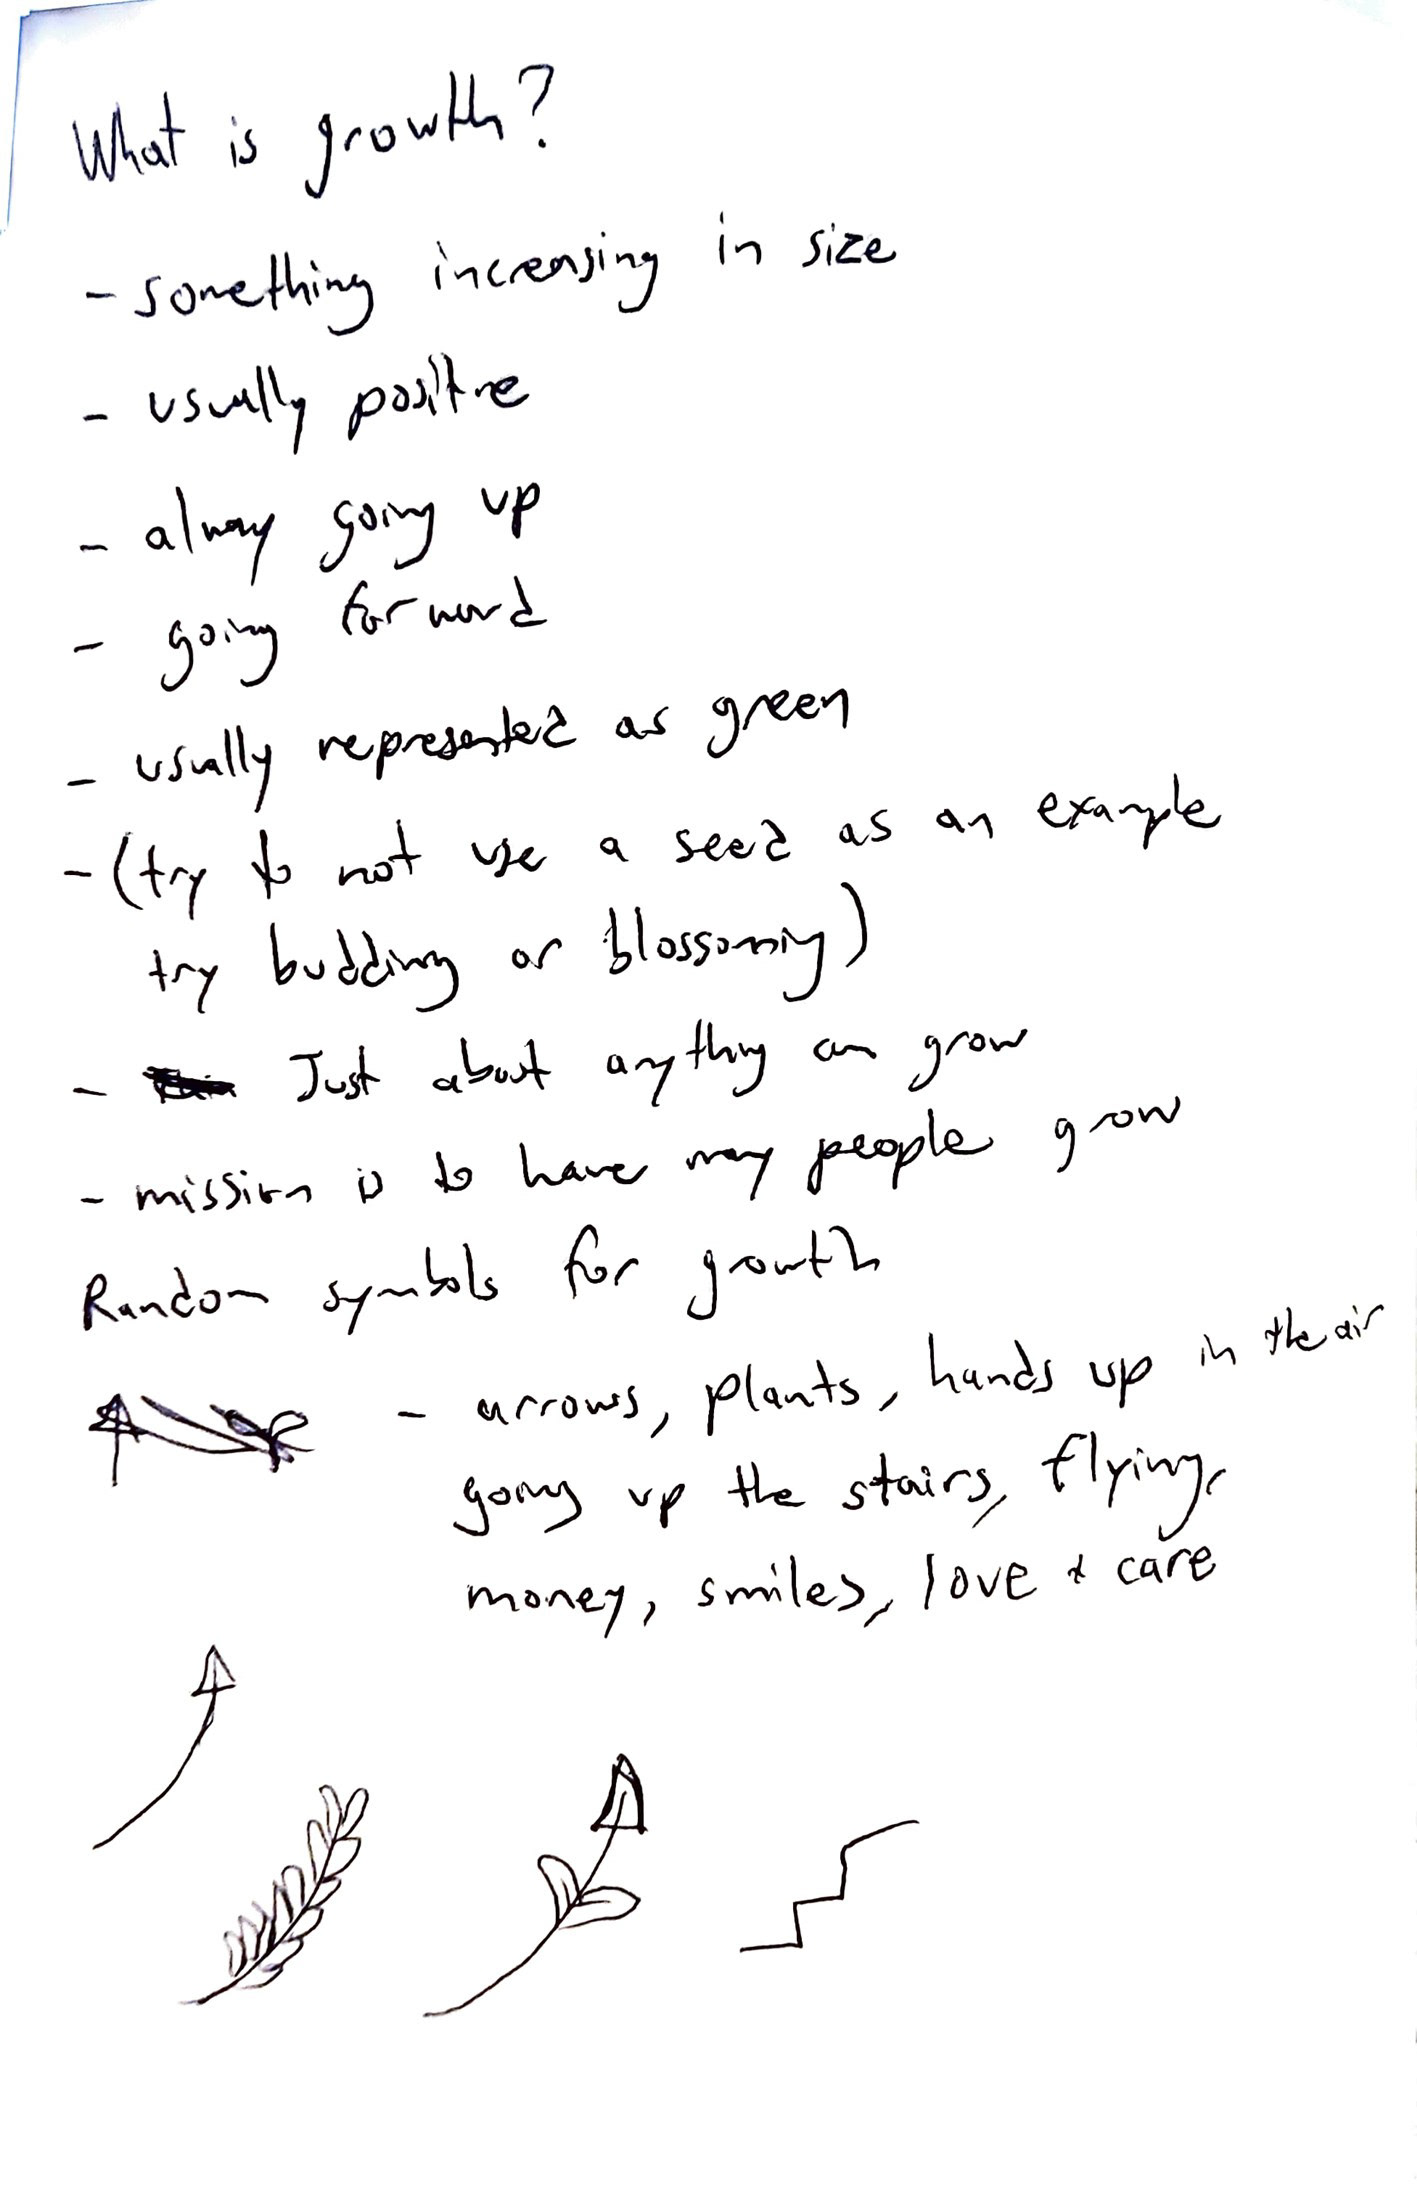 What is growth?
- something increasing in size
- usually positive
- alway going up
- going forward
- usually represented as green
- (try to not use a seed as an example
try budding or blossoming)
- Just about anything can grow
- mission is to have many people grow
Random symbols for growth
- arrows, plants, hands up in the air
going up the stairs, flying,
money, smiles, love + care